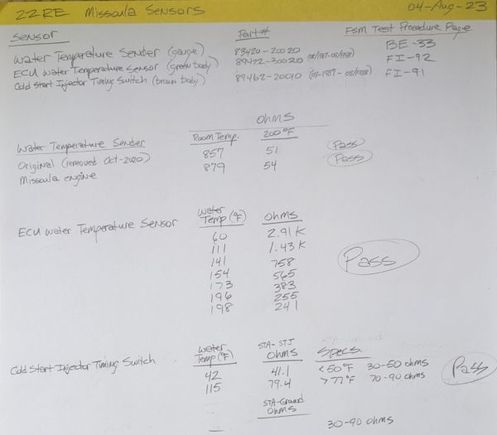 22RE Missoula Sensors 04-Aug-23
Sensor Part# FSM Test Procedure Page
Water Temperature Sender (gauge) 83420-20020 BE-33
ECU Water Temperature Sensor (green body) 89422-30020 FI-92
Cold Start Injector Timing Switch (brown body) 89462-20040 FI-91
Ohms
Room Temp. 200°F
Water Temperature Sender
Original (removed Oct-2020) 857 51 Pass
Missoula engine 879 54 Pass
ECU Water Temperature Sensor Water Temp (°F) Ohms
60 2.91K
111 1.43K
141 758
154 565
173 383
196 255
198 241
Pass
Cold Start Injector Timing Switch Water Temp (°F) STA-STJ Ohms Specs
42 41.1 <50°F 30-50 ohms
115 79.4 >77°F 70-90 ohms
Pass
STA-Ground
Ohms
30-90 ohms